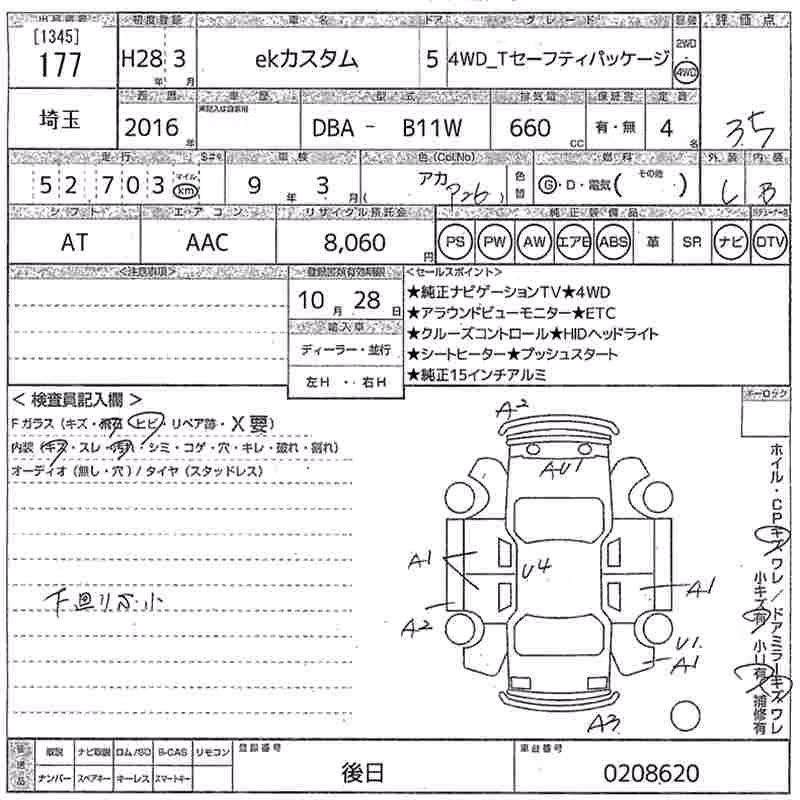 出品番号 初度登録 車名 ドア グレード 駆動 評価点
[1345]
177 H28 年 3 月 ekカスタム 5 4WD_Tセーフティパッケージ 2WD 4WD
埼玉 西暦 車歴 型式 排気量 保証書 定員
2016 年 DBA - B11W 660 CC 有・無 4 名 3.5
走行 S#% 車検 色(Col.No) 色替 燃料 外装 内装
52703 マイル km 9 年 3 月 ( アカ P26 ) G・D・電気( その他 ) C B
シフト エアコン リサイクル預託金 純正装備品
AT AAC 8,060 円 PS PW AW エアB ABS 革 SR ナビ DTV
<注意事項> 登録書類有効期限 <セールスポイント>
10 月 28 日 ★純正ナビゲーションTV★4WD
★アラウンドビューモニター★ETC
輸入車 ★クルーズコントロール★HIDヘッドライト
ディーラー・並行 ★シートヒーター★プッシュスタート
左H ・・ 右H ★純正15インチアルミ
< 検査員記入欄 >
Fガラス (キズ・飛石・ヒビ・リペア跡・X要)
内装 (キズ・スレ・汚れ・シミ・コゲ・穴・キレ・破れ・割れ)
オーディオ (無し・穴) / タイヤ (スタッドレス)
下回りサ小
ボーロック
A2
AU1
A1 U4 A1
A2 U1.
A1
A3
ホイル・CPキズワレ / ドアミラーキズワレ
小キズ有 小U有 補修有
後送品 取説 ナビ取説 ロム/SD B-CAS リモコン 登録番号 車台番号
ナンバー スペアキー キーレス スマートキー 後日 0208620